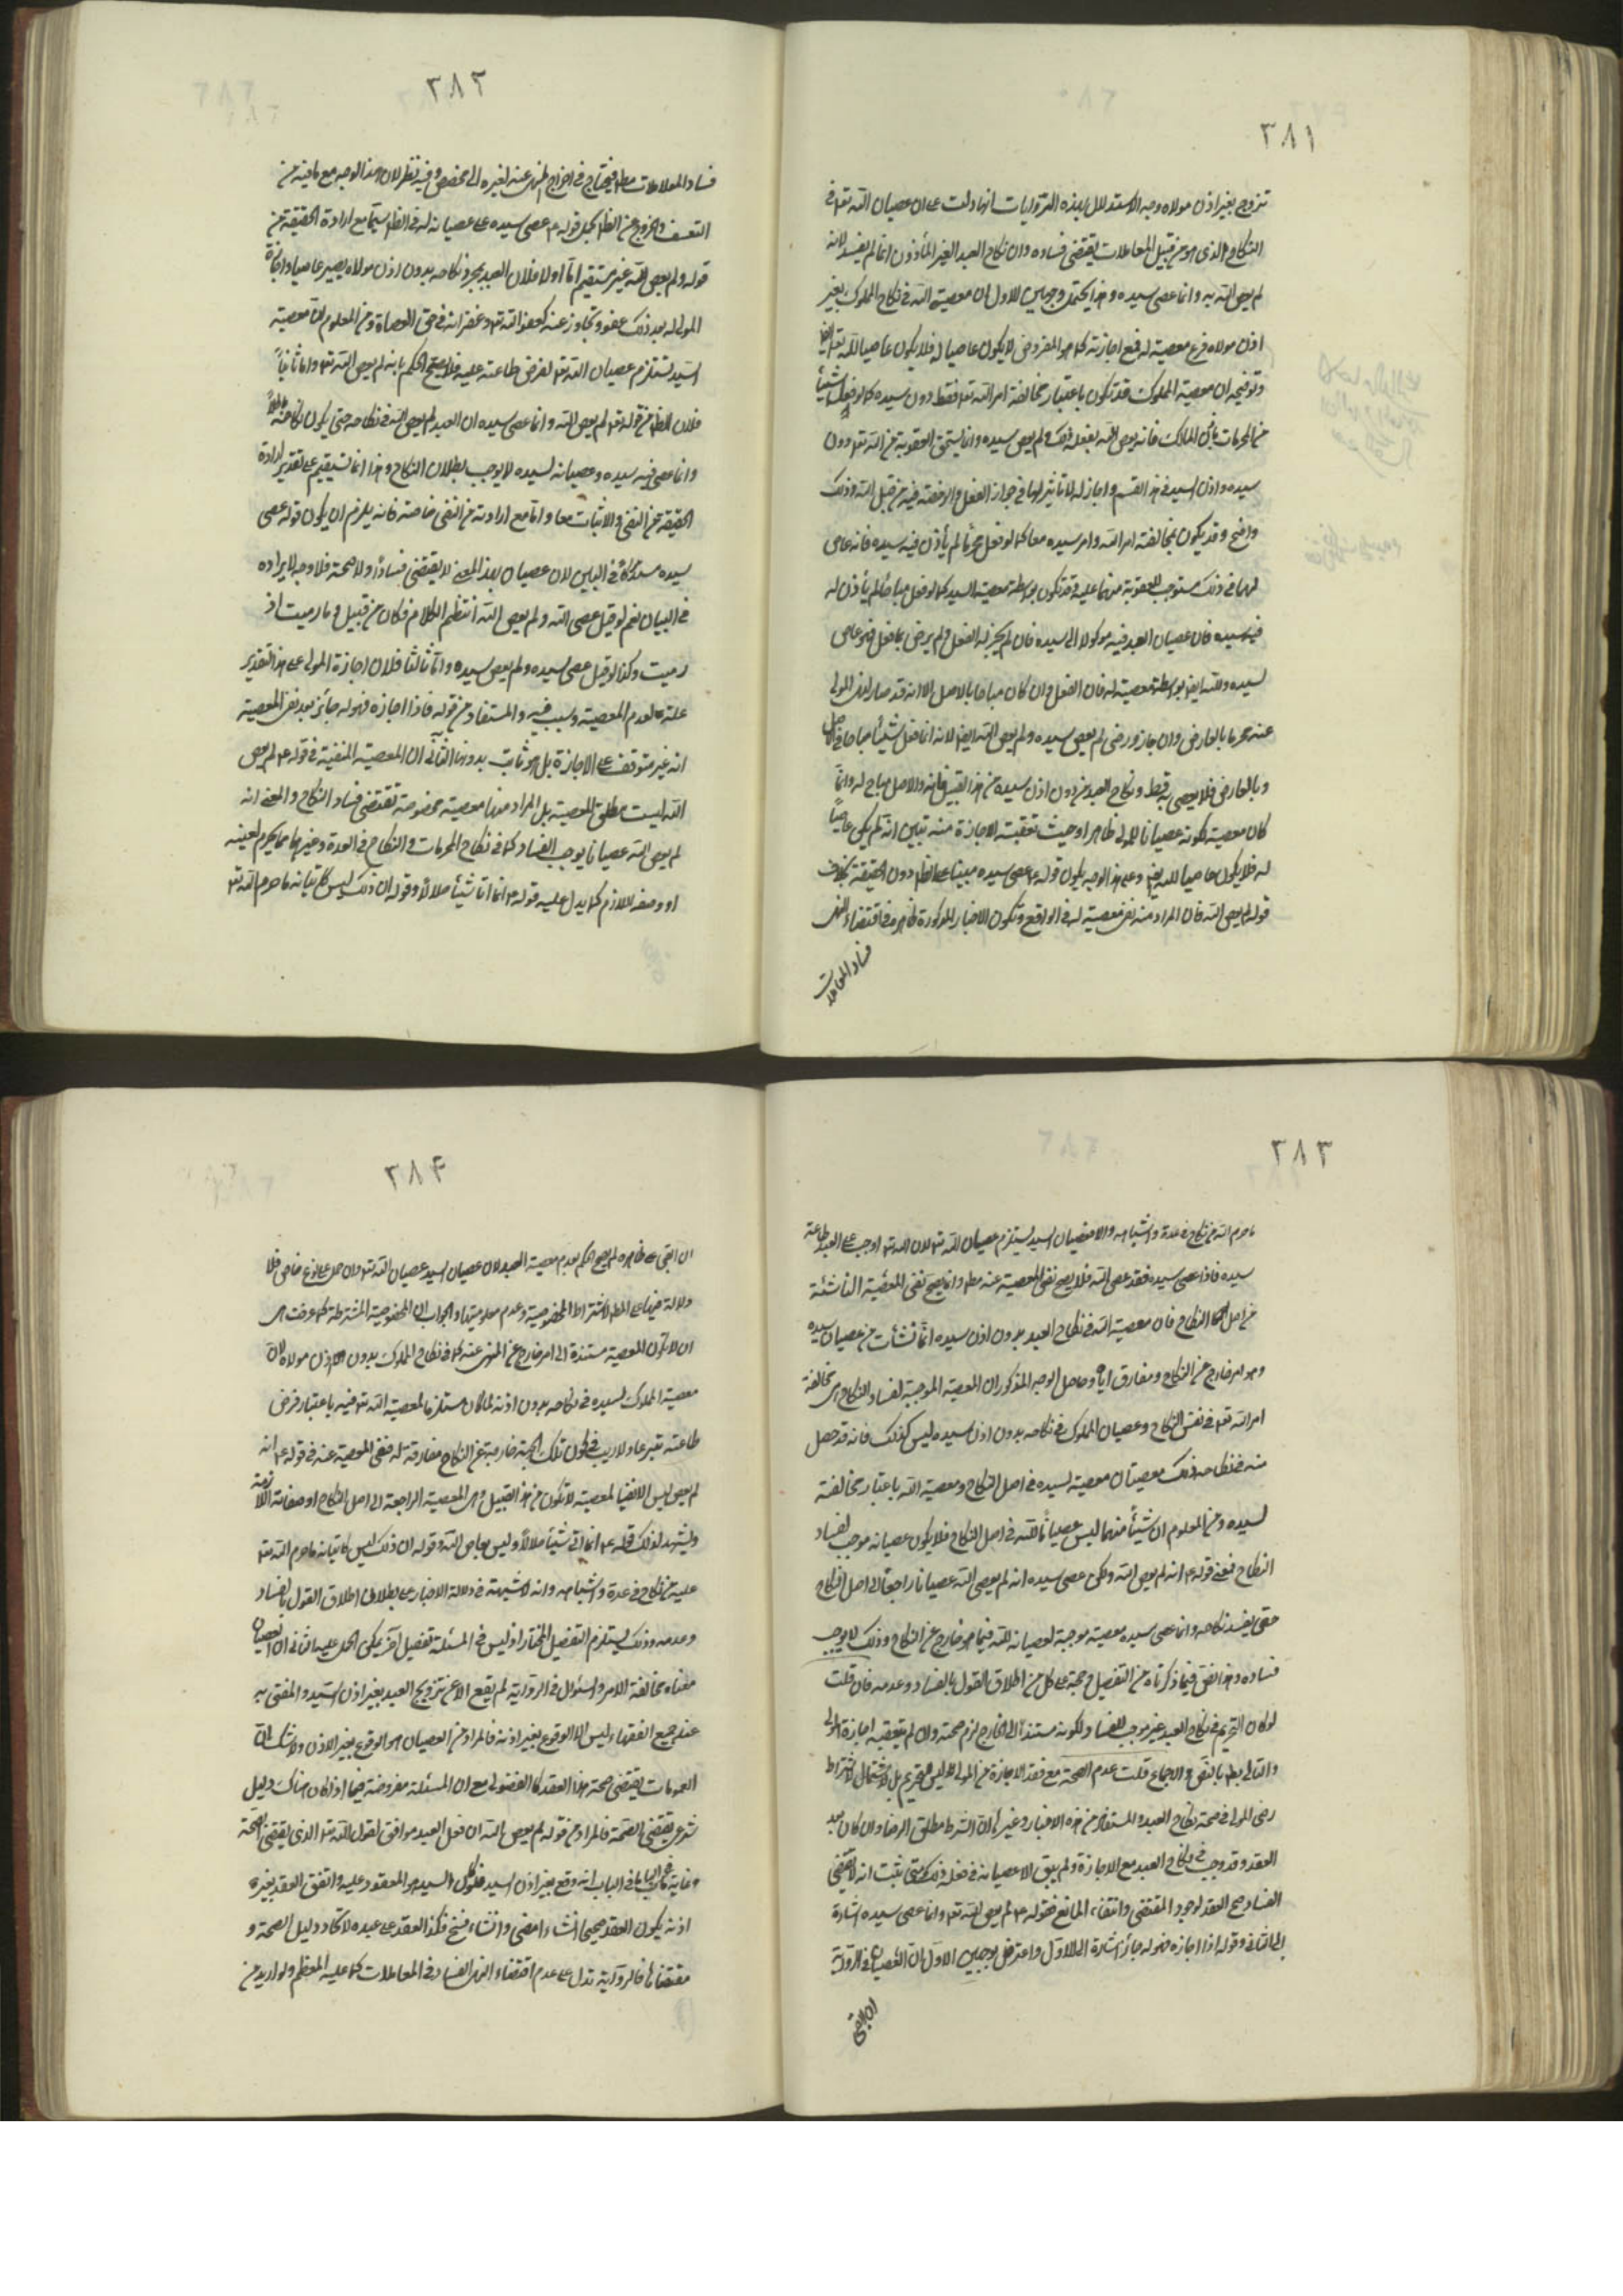 ٣٨١
تزوج بغير اذن مولاه وجه الاستدلال بهذه الروايات انها دلت على ان عصيان الله تعه في
النكاح الذى هو من قبيل المعاملات يقتضى فساده وان نكاح العبد الغير المأذون انما لم يفسد لانه
لم يعص الله به وانما عصى سيده وهذا يحتمل وجهين الاول ان معصية الله في نكاح المملوك بغير
اذن مولاه فرع معصية له فمع اجازته كما هو المفروض لا يكون عاصيا له فلا يكون عاصيا لله تعه ايضا
وتوضيحه ان معصية المملوك قد تكون باعتبار مخالفة امر الله تعه فقط دون سيده كما لو فعل شيئا
من المحرمات باذن المالك فانه يعص الله بفعله ذلك ولم يعص سيده وانما يستحق العقوبة من الله تعه دون
سيده واذن السيد في هذا القسم واجازته لا تأثير لها في جواز الفعل والرخصة فيه من قبل الله وذلك
واضح وقد يكون بمخالفة امر الله وامر سيده معا كما لو فعل محرما لم يأذن فيه سيده فانه عاص
لهما في ذلك مستوجب للعقوبة منهما عليه وقد تكون بواسطة معصية السيد كما لو فعل مباحا لم يأذن له
فيه سيده فان عصيان العبد فيه موكولا الى سيده فان لم يجز له الفعل ولم يرض بما فعل فهو عاص
لسيده ولله ايضا بواسطة معصيته له فان الفعل وان كان مباحا بالاصل الا انه قد صار لنهى المولى
عنه محرما بالعارض وان جاز ورضى لم يعص سيده ولم يعص الله ايضا لانه انما فعل شيئا مباحا في الاصل
وبالعارض فلا يعصى به قط ونكاح العبد من دون اذن سيده من هذا القبيل فانه والاصل مباح له وانما
كان معصية لكونه عصيانا للمولى ظاهرا وحيث تعقبته الاجازة منه تبين انه لم يكن عاصيا
له فلا يكون عاصيا لله ايضا وعلى هذا الوجه يكون قوله ع عصى سيده مبنيا على الظاهر دون الحقيقة بخلاف
قوله لم يعص الله فان المراد منه نفى معصيته له في الواقع وتكون الاخبار المذكورة ظاهره في اقتضاء النهى
فساد المعاملات
٣٨٢
فساد المعاملات مطلقا فيحتاج في اخراج المنهى عنه لغيره الى مخصص وفيه نظر لان هذا الوجه مع ما فيه من
التعسف والخروج عن الظاهر بحمل قوله ع عصى سيده على عصيانه له في الظاهر سيما مع ارادة الحقيقة من
قوله ولم يعص الله غير مستقيم اما اولا فلان العبد بمجرد نكاحه بدون اذن مولاه يصير عاصيا واجازة
المولى له بعد ذلك عفو وتجاوز عنه كعفو الله تعه وغفرانه في حق العصاة ومن المعلوم ان معصية
السيد تستلزم عصيان الله تعه لفرض طاعته عليه فلا يصح الحكم بانه لم يعص الله تعه واما ثانيا
فلان الظاهر من قوله تعه لم يعص الله وانما عصى سيده ان العبد لم يعص الله في نكاحه حتى يكون نكاحه باطلا
وانما عصى فيه سيده وعصيانه لسيده لا يوجب بطلان النكاح وهذا انما يستقيم على تقدير ارادة
الحقيقة من النفى والاثبات معا واما مع ارادته من النفى خاصة فانه يلزم ان يكون قوله عصى
سيده مستدركا في البين لان عصيان بهذا المعنى لا يقتضى فسادا ولا صحة فلا وجه لايراده
في البيان نعم لو قيل عصى الله ولم يعص الله انتظم الكلام فكان من قبيل وما رميت اذ
رميت وكذا لو قيل عصى سيده ولم يعص سيده واما ثالثا فلان اجازة المولى على هذا التقدير
علة لعدم المعصية وسبب فيه والمستفاد من قوله فاذا اجازه فهو له جائز بعد نفى المعصية
انه غير متوقف على الاجازة بل هو ثابت بدونها الثانى ان المعصية المنفية في قوله ع لم يعص
الله ليست مطلق المعصية بل المراد منها معصية مخصوصة تقتضى فساد النكاح والمعنى انه
لم يعص الله عصيانا يوجب الفساد كما في نكاح المحرمات والنكاح في العدة وغيرهما مما يحرم لعينه
او وصفه اللازم كما يدل عليه قوله ع انما اتى شيئا حلالا وقوله ان ذلك ليس كاتيانه ما حرم الله تعه
٣٨٣
ما حرم الله من نكاح في عدة واشباهه والا فعصيان السيد يستلزم عصيان الله تعه لان الله تعه اوجب على العبد طاعة
سيده فاذا عصى سيده فقد عصى الله فلا يصح نفى المعصية عنه مطلقا وانما يصح نفى المعصية الناشئة
من اصل النكاح فان معصية الله في نكاح العبد بدون اذن سيده انما نشأت من عصيان سيده
وهو امر خارج عن النكاح ومفارق اياه وحاصل الوجه المذكور ان المعصية الموجبة لفساد النكاح هى مخالفة
امر الله تعه في نفس النكاح وعصيان المملوك في نكاحه بدون اذن سيده ليس كذلك فانه قد حصل
منه في نكاحه ذلك معصيتان معصية لسيده في اصل النكاح ومعصية الله باعتبار مخالفته
لسيده ومن المعلوم ان شيئا منهما ليس عصيانا لله في اصل النكاح فلا يكون عصيانه موجب لفساد
النكاح فمعنى قوله ع انه لم يعص الله ولكن عصى سيده انه لم يعص الله عصيانا راجعا الى اصل النكاح
حتى يفسد نكاحه وانما عصى سيده معصية موجبة لعصيانه لله فيما هو خارج عن النكاح وذلك لا يوجب
فساده وهذا نص فيما ذكرناه من التفصيل وحجة على كل من اطلاق القول بالفساد وعدمه فان قلت
لو كان التحريم في نكاح العبد غير موجب للفساد لكونه مستندا الى الخارج لزم صحته وان لم يتعقبه اجازة المولى
والتالى بط بالنص والاجماع قلت عدم الصحة مع فقد الاجازة من المولى ليس لتحريم بل لاشتراط
رضى المولى في صحة نكاح العبد والمستفاد من هذه الاخبار وغيرها ان الشرط مطلق الرضا وان كان بعد
العقد وقد وجب في نكاح العبد مع الاجازة ولم يبق الا عصيانه في فعله ذلك ومتى ثبت انه لا يقتضى
الفساد صح العقد لوجود المقتضى وانتفاء المانع فقوله ع لم يعص الله تعه وانما عصى سيده اشارة
الى الثانى وقوله اذا اجازه فهو له جائز اشارة الى الاول واعترض بوجهين الاول ان العصيان في الرواية
ان ابقى
٣٨۴
ان ابقى على ظاهره لم يصح الحكم بعدم معصية العبد لان عصيان السيد عصيان الله تعه وان حمل على نوع خاص فلا
دلالة فيها على المط لاشتراط المخصوصية وعدم معلوميتها والجواب ان المخصوصية المشترطة كما عرفت هى
ان لا تكون المعصية مستندة الى امر خارج عن المنهى عنه كما في نكاح المملوك بدون اذن مولاه لان
معصية المملوك لسيده في نكاحه بدون اذنه لما كان مستلزما لمعصية الله تعه فيه باعتبار فرض
طاعته شرعا ولا ريب في كون تلك الجهة خارجة عن النكاح مفارقة له فنفى المعصية عنه في قوله ع انه
لم يعص ليس الا نفيا لمعصية لا تكون من هذا القبيل وهى المعصية الراجعة الى اصل النكاح او صفاته اللازمة
ويشهد لذلك قوله ع انما اتى شيئا حلالا وليس بعاص الله وقوله ان ذلك ليس كاتيانه ما حرم الله تعه
عليه من نكاح في عدة واشباهه وانه لا شبهة في دلالة الاخبار على بطلان اطلاق القول بالفساد
وعدمه وذلك يستلزم التفصيل المختار اذ ليس في المسئلة تفصيل آخر يمكن الحمل عليه الثانى ان العصيان
معناه مخالفة الامر والسئوال في الرواية لم يقع الا عن تزويج العبد بغير اذن السيد والمفتى به
عند جميع الفقهاء ليس الا الوقوع بغير اذنه فالمراد من العصيان هو الوقوع بغير الاذن ولا شك ان
العمومات يقتضى صحة هذا العقد كالفضولى مع ان المسئلة مفروضة فيما اذا كان هناك دليل
شرعى يقتضى الصحة فالمراد من قوله لم يعص الله ان فعل العبد موافق لقول الله تعه الذى يقتضى الصحة
وغاية ما في الباب انه وقع بغير اذن السيد فلكون السيد هو المعقود عليه واتفق العقد بغير
اذنه يكون العقد صحيحا انشاء امضى وانشاء فسخ فكذا العقد على عبده لاتحاد دليل الصحة و
مقتضاها فالرواية تدل على عدم اقتضاء النهى الفساد في المعاملات كما عليه المعظم ولو اريد من